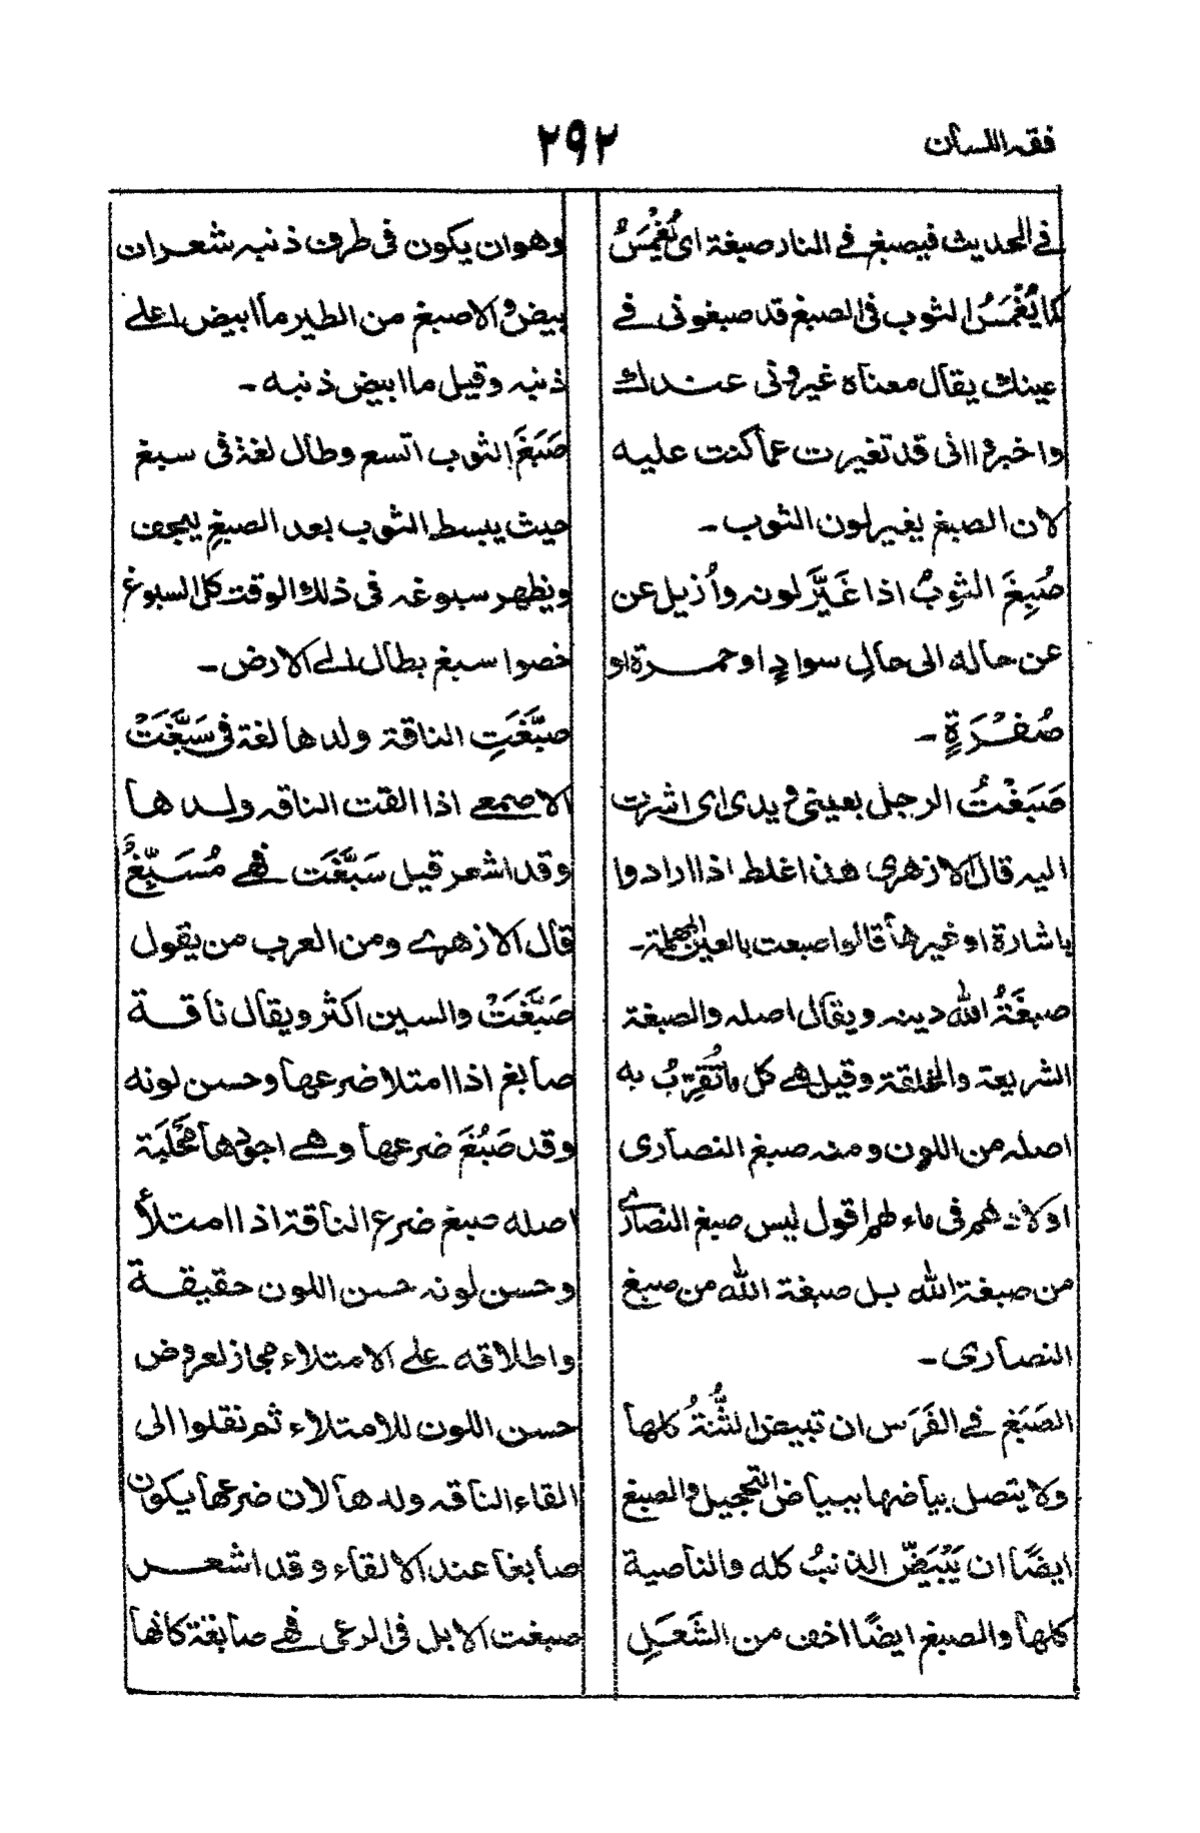 فقه اللسان
٢٩٢
في الحديث فيصبغ في النار صبغة اى يُغْمِسُ
كما يُغْمَسُ الثوب فى الصبغ قد صبغونى في
عينك يقال معناه غيرونى عندك
واخبروا انى قد تغيرت عما كنت عليه
لان الصبغ يغير لون الثوب ـ
صُبِغَ الثوبُ اذا غَيَّرَ لونه واُزيل عن
عن حاله الى حالِ سوادٍ او حمرة او
صُفْرَةٍ ـ
صَبَغْتُ الرجل بعينى و يدى اى اشرت
اليه قال الازهرى هذا غلط اذا ارادوا
باشارة او غيرها قالوا صبعت بالعين المهملة ـ
صبغَةُ الله دينه ويقال اصله والصبغة
الشريعة والخلقة وقيل هي كل ما تُقُرِّبَ به
اصله من اللون ومنه صبغ النصارى
اولادهم فى ماء لهم اقول ليس صبغ النصارى
من صبغة الله بل صبغة الله من صبغ
النصارى ـ
الصَبَغ في الفَرَس ان تبيض الثُّنةُ كلها
ولا يتصل بياضها ببياض التحجيل والصبغ
ايضًا ان يَبْيَضّ الذنبُ كله والناصية
كلها والصبغ ايضًا اخف من الشَعَلِ
وهو ان يكون فى طرف ذنبه شعرات
بيض والاصبغ من الطير ما ابيض اعلى
ذنبه وقيل ما ابيض ذنبه ـ
صَبَغَ الثوب اتسع وطال لغة فى سبغ
حيث يبسط الثوب بعد الصبغِ ليجف
ويظهر سبوغه فى ذلك الوقت كل السبوغ
خصوا سبغ بطال الى الارض ـ
صبَّغَتِ الناقة ولدها لغة فى سَبَّغَتْ
الاصمعي اذا القت الناقه ولدها
وقد اشعر قيل سَبَّغَت فهي مُسَبِّغٌ
قال الازهري ومن العرب من يقول
صَبَّغَتْ والسين اكثر ويقال ناقة
صابغ اذا امتلا ضرعها وحسن لونه
وقد صَبُغَ ضرعها وهي اجودها مَحْلَبَة
اصله صبغ ضرع الناقة اذا امتلأ
وحسن لونه حسن اللون حقيقة
واطلاقه على الامتلاء مجاز لعروض
حسن اللون للامتلاء ثم نقلوا الى
القاء الناقه ولدها لان ضرعها يكون
صابغا عند الالقاء وقد اشعر
صبغت الابل فى الرعى فهي صابغة كانها